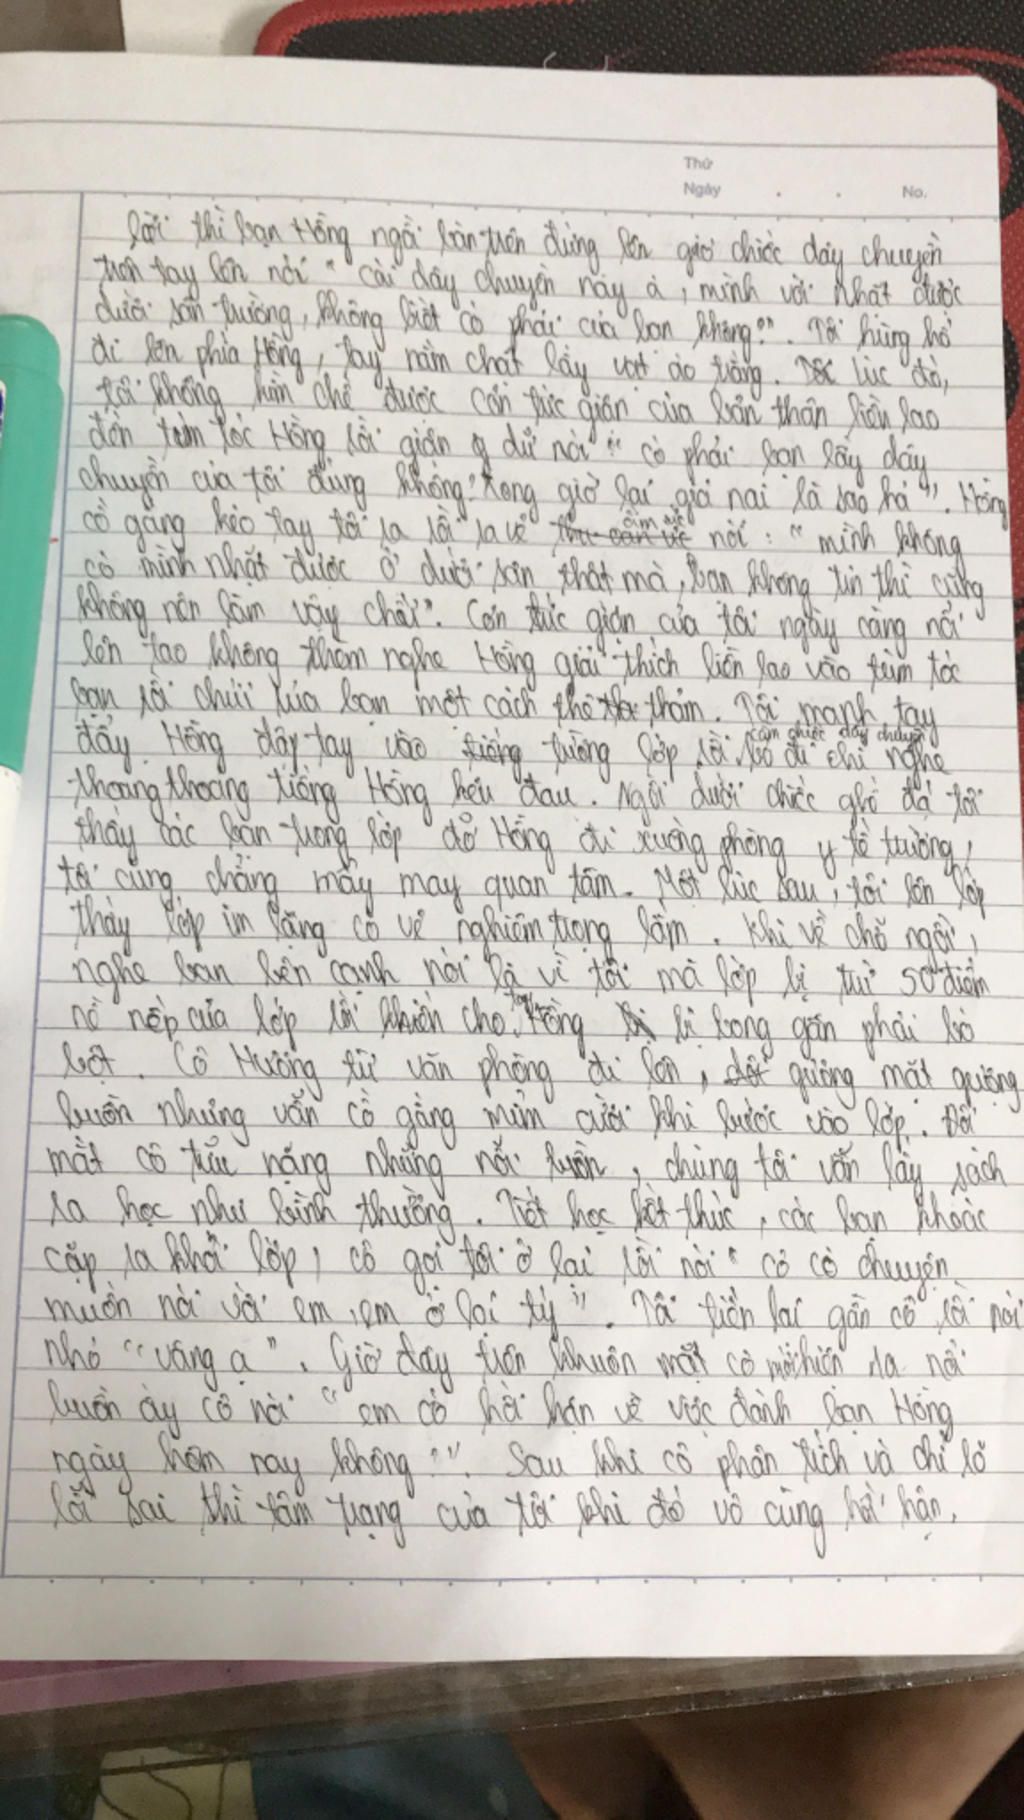 Thứ
Ngày . . No.
lời thì bạn Hồng ngồi bàn trên đứng lên giơ chiếc dây chuyền
trên tay lên nói " cái dây chuyền này à, mình vời nhặt được
dưới sân trường, không biết có phải của bạn không?". Tôi hùng hổ
đi lên phía Hồng, tay nắm chặt lấy vạt áo trắng. lúc đó,
tôi không kìm chế được cơn tức giận của bản thân liền lao
đến túm tóc Hồng rồi giận dữ nói " có phải bạn lấy dây
chuyền của tôi đúng không? xong giờ lại giả nai là sao hả". Hồng
cố gắng kéo tay tôi ra rồi ra vẻ ấm ức nói : " mình không
có mình nhặt được ở dưới sân thật mà, bạn không tin thì cũng
không nên làm vậy chứ". Cơn tức giận của tôi ngày càng nổi
lên tao không thèm nghe Hồng giải thích liền lao vào túm tóc
bạn rồi chửi rủa bạn một cách thô thảm. Tôi mạnh tay
đẩy Hồng đập tay vào tường lớp rồi cầm chiếc dây chuyền bỏ đi chỉ nghe
thoang thoang tiếng Hồng kêu đau. Ngồi dưới chiếc ghế đá tôi
thấy các bạn trong lớp đỡ Hồng đi xuống phòng y tế trường,
tôi cũng chẳng mấy may quan tâm. Một lúc sau, tôi lên lớp
thấy lớp im lặng có vẻ nghiêm trọng lắm. Khi về chỗ ngồi,
nghe bạn bên cạnh nói là vì tôi mà lớp bị trừ 50 điểm
nề nếp của lớp rồi khiến cho tay Hồng bị bong gân phải bó
bột. Cô Hương từ văn phòng đi lên, gương mặt gượng
buồn nhưng vẫn cố gắng mỉm cười khi bước vào lớp. Đôi
mắt cô trĩu nặng những nỗi buồn, chúng tôi vẫn lấy sách
ra học như bình thường. Tiết học kết thúc, các bạn khoác
cặp ra khỏi lớp, cô gọi tôi ở lại rồi nói " cô có chuyện
muốn nói với em, em ở lại tý". Tôi tiến lại gần cô rồi nói
nhỏ "vâng ạ". Giờ đây trên khuôn mặt cô mới hiện ra nỗi
buồn ấy cô nói " em có hối hận về việc đánh bạn Hồng
ngày hôm nay không?". Sau khi cô phân tích và chỉ rõ
lỗi sai thì tâm trạng của tôi khi đó vô cùng hối hận,